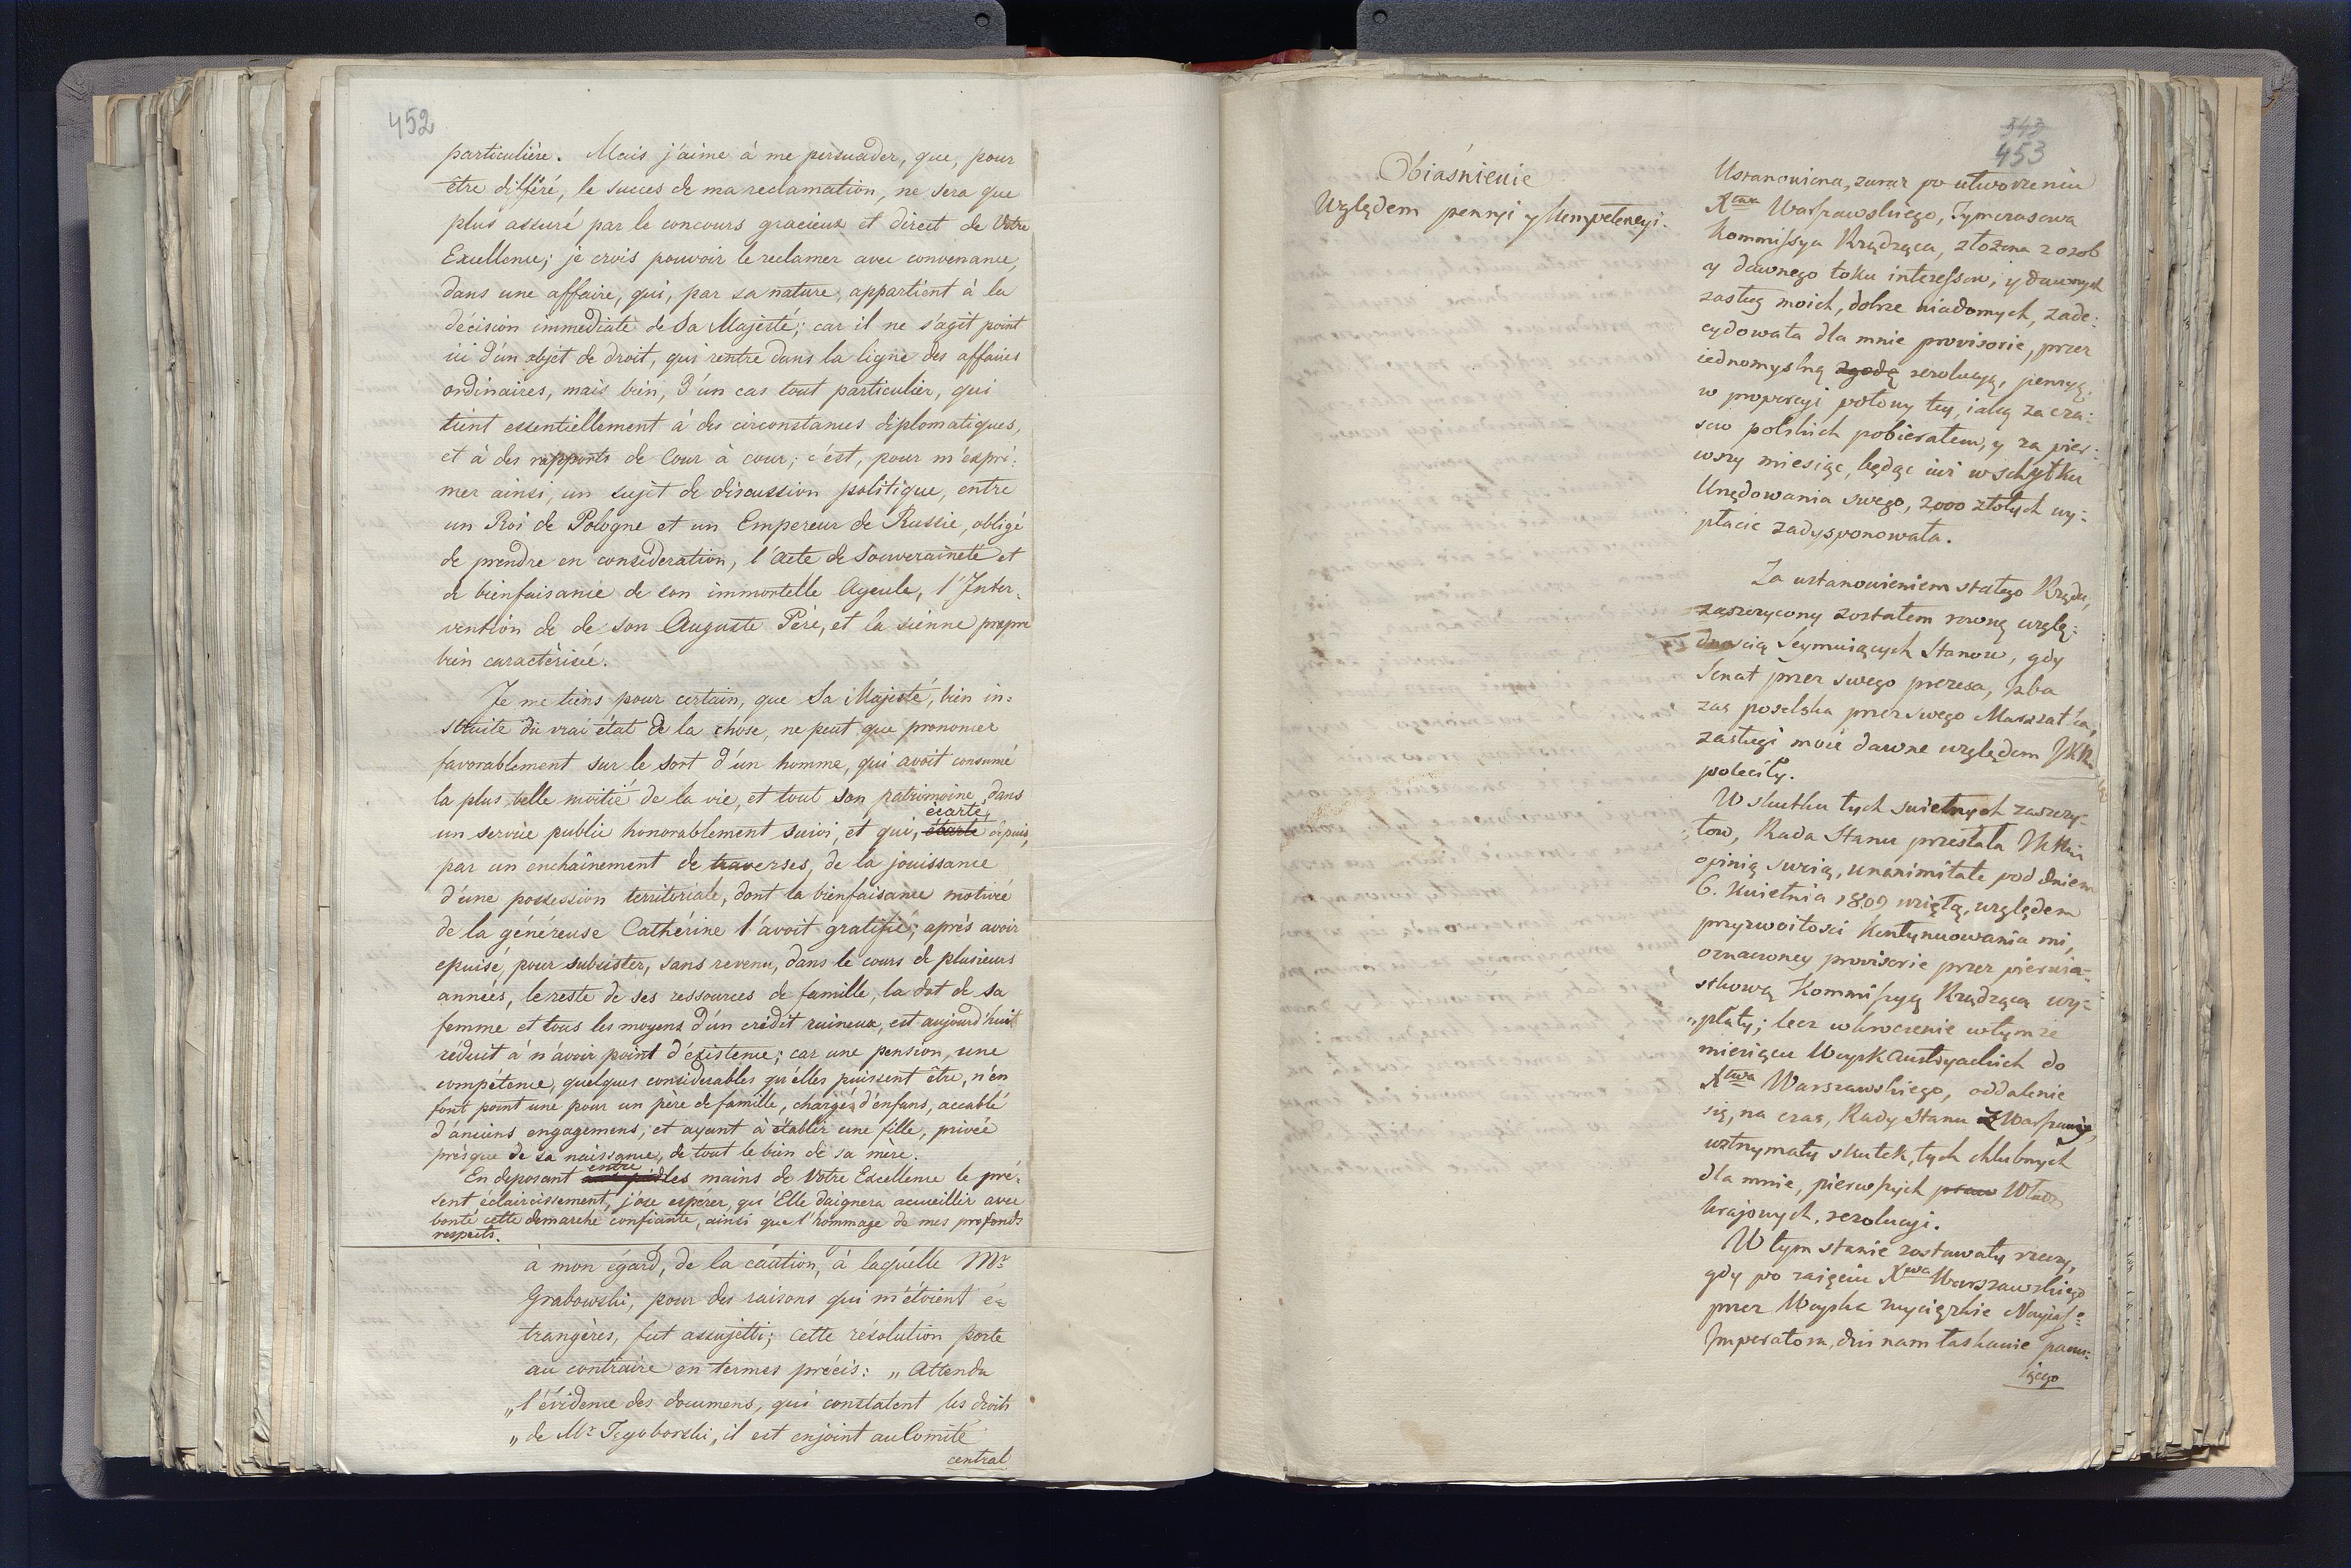 452
particulière. Mais j'aime à me persuader, que, pour
être différé, le succes de ma reclamation, ne sera que
plus assuré par le concours gracieux et direct de Votre
Excellence; je crois pouvoir le reclamer avec convenance,
dans une affaire, qui, par sa nature, appartient à la
décision immediate de Sa Majesté; car il ne s'agit point
ici d'un objet de droit, qui rentre dans la ligne des affaires
ordinaires, mais bien, d'un cas tout particulier, qui
tient essentiellement à des circonstances diplomatiques,
et à des rapports de Cour à cour; c'est, pour m'expri:
mer ainsi, un sujet de discussion politique, entre
un Roi de Pologne et un Empereur de Russie, obligé
de prendre en consideration, l'Acte de Souveraineté et
de bienfaisance de son immortelle Ayeule, l'Inter:
vention de de son Auguste Père, et la sienne propre
bien caractérisée.
Je me tiens pour certain, que Sa Majesté, bien in:
struite du vrai état de la chose, ne peut que prononcer
favorablement sur le sort d'un homme, qui avoit consumé
la plus belle moitié de la vie, et tout son patrimoine, dans
écarté,
un service public honorablement suivi, et qui, écarté depuis,
par un enchaînement de traverses, de la jouissance
d'une possession territoriale, dont la bienfaisance motivée
de la généreuse Cathérine l'avoit gratifié; après avoir
epuisé, pour subsister, sans revenu, dans le cours de plusieurs
années, le reste de ses ressources de famille, la dot de sa
femme et tous les moyens d'un crédit ruineux, est aujourd'huit
réduit à n'avoir point d'existence; car une pension, une
compétence, quelques considerables qu'elles puissent être, n'en
font point une pour un père de famille, chargé d'enfans, accablé
d'anciens engagemens, et ayant à établir une fille, privée
présque de sa naissance, de tout le bien de sa mère.
entre
En deposant les mains de Votre Excellence le pré:
sent éclaircissement, j'ose espérer, qu'Elle daignera accueillir avec
bonté cette demarche confiante, ainsi que l'hommage de mes profonds
respects.
à mon égard, de la caution, à laquelle Mr
Grabowski, pour des raisons qui m'étoient é=
trangères, fut assujetti; cette résolution porte
au contraire en termes précis: „Attendu
„l'évidence des documens, qui constatent les droits
„de Mr Tęgoborski, il est enjoint au Comité
central
543
453
Obiaśnienie
Względem pensyi y kompetencyi.
Ustanowiona, zaraz po utworzeniu
Xtwa Warszawskiego, Tymczasowa
Kommissya Rządząca, złożona z osob
y dawnego toku interessow, y dawnych
zasług moich, dobrze wiadomych, zade:
cydowała dla mnie provisorie, przez
iednomyslną zgodę rezolucyą, pensyą,
w proporcyi połowy tey, iaką za cza:
sow polskich pobierałem, y za pier:
wszy miesiąc, będąc iuż w schyłku
Urzędowania swego, 2000 złotych wy:
płacic zadysponowała.
Za ustanowieniem stałego Rządu,
zaszczycony zostałem rowną wzglę:
dnoscią Seymuiących Stanow, gdy
Senat przez swego prezesa, Izba
zas poselska przez swego Marszałka,
zasługi moie dawne względem JKM
poleciły.
W skutku tych swietnych zaszczy:
tow, Rada Stanu przesłała
opinią swoią, unanimitate pod dniem
6. Kwietnia 1809 wziętą, względem
przyzwoitosci kontynuowania mi,
oznaczoney provisorie przez pierwia:
stkową Kommissyą Rządzącą wy:
płaty; lecz wkroczenie w tymże
miesiącu Woysk Austryackich do
Xtwa Warszawskiego, oddalenie
się, na czas, Rady Stanu z Warszawy,
wstrzymały skutek, tych chlubnych
dla mnie, pierwszych praw Władz
krajowych, rezolucyi.
W tym stanie zostawały rzeczy,
gdy po zaięciu Xtwa Warszawskiego
przez Woyska zwycięzkie Nayiaśo
Imperatora, dziś nam łaskawie panu:
iącego